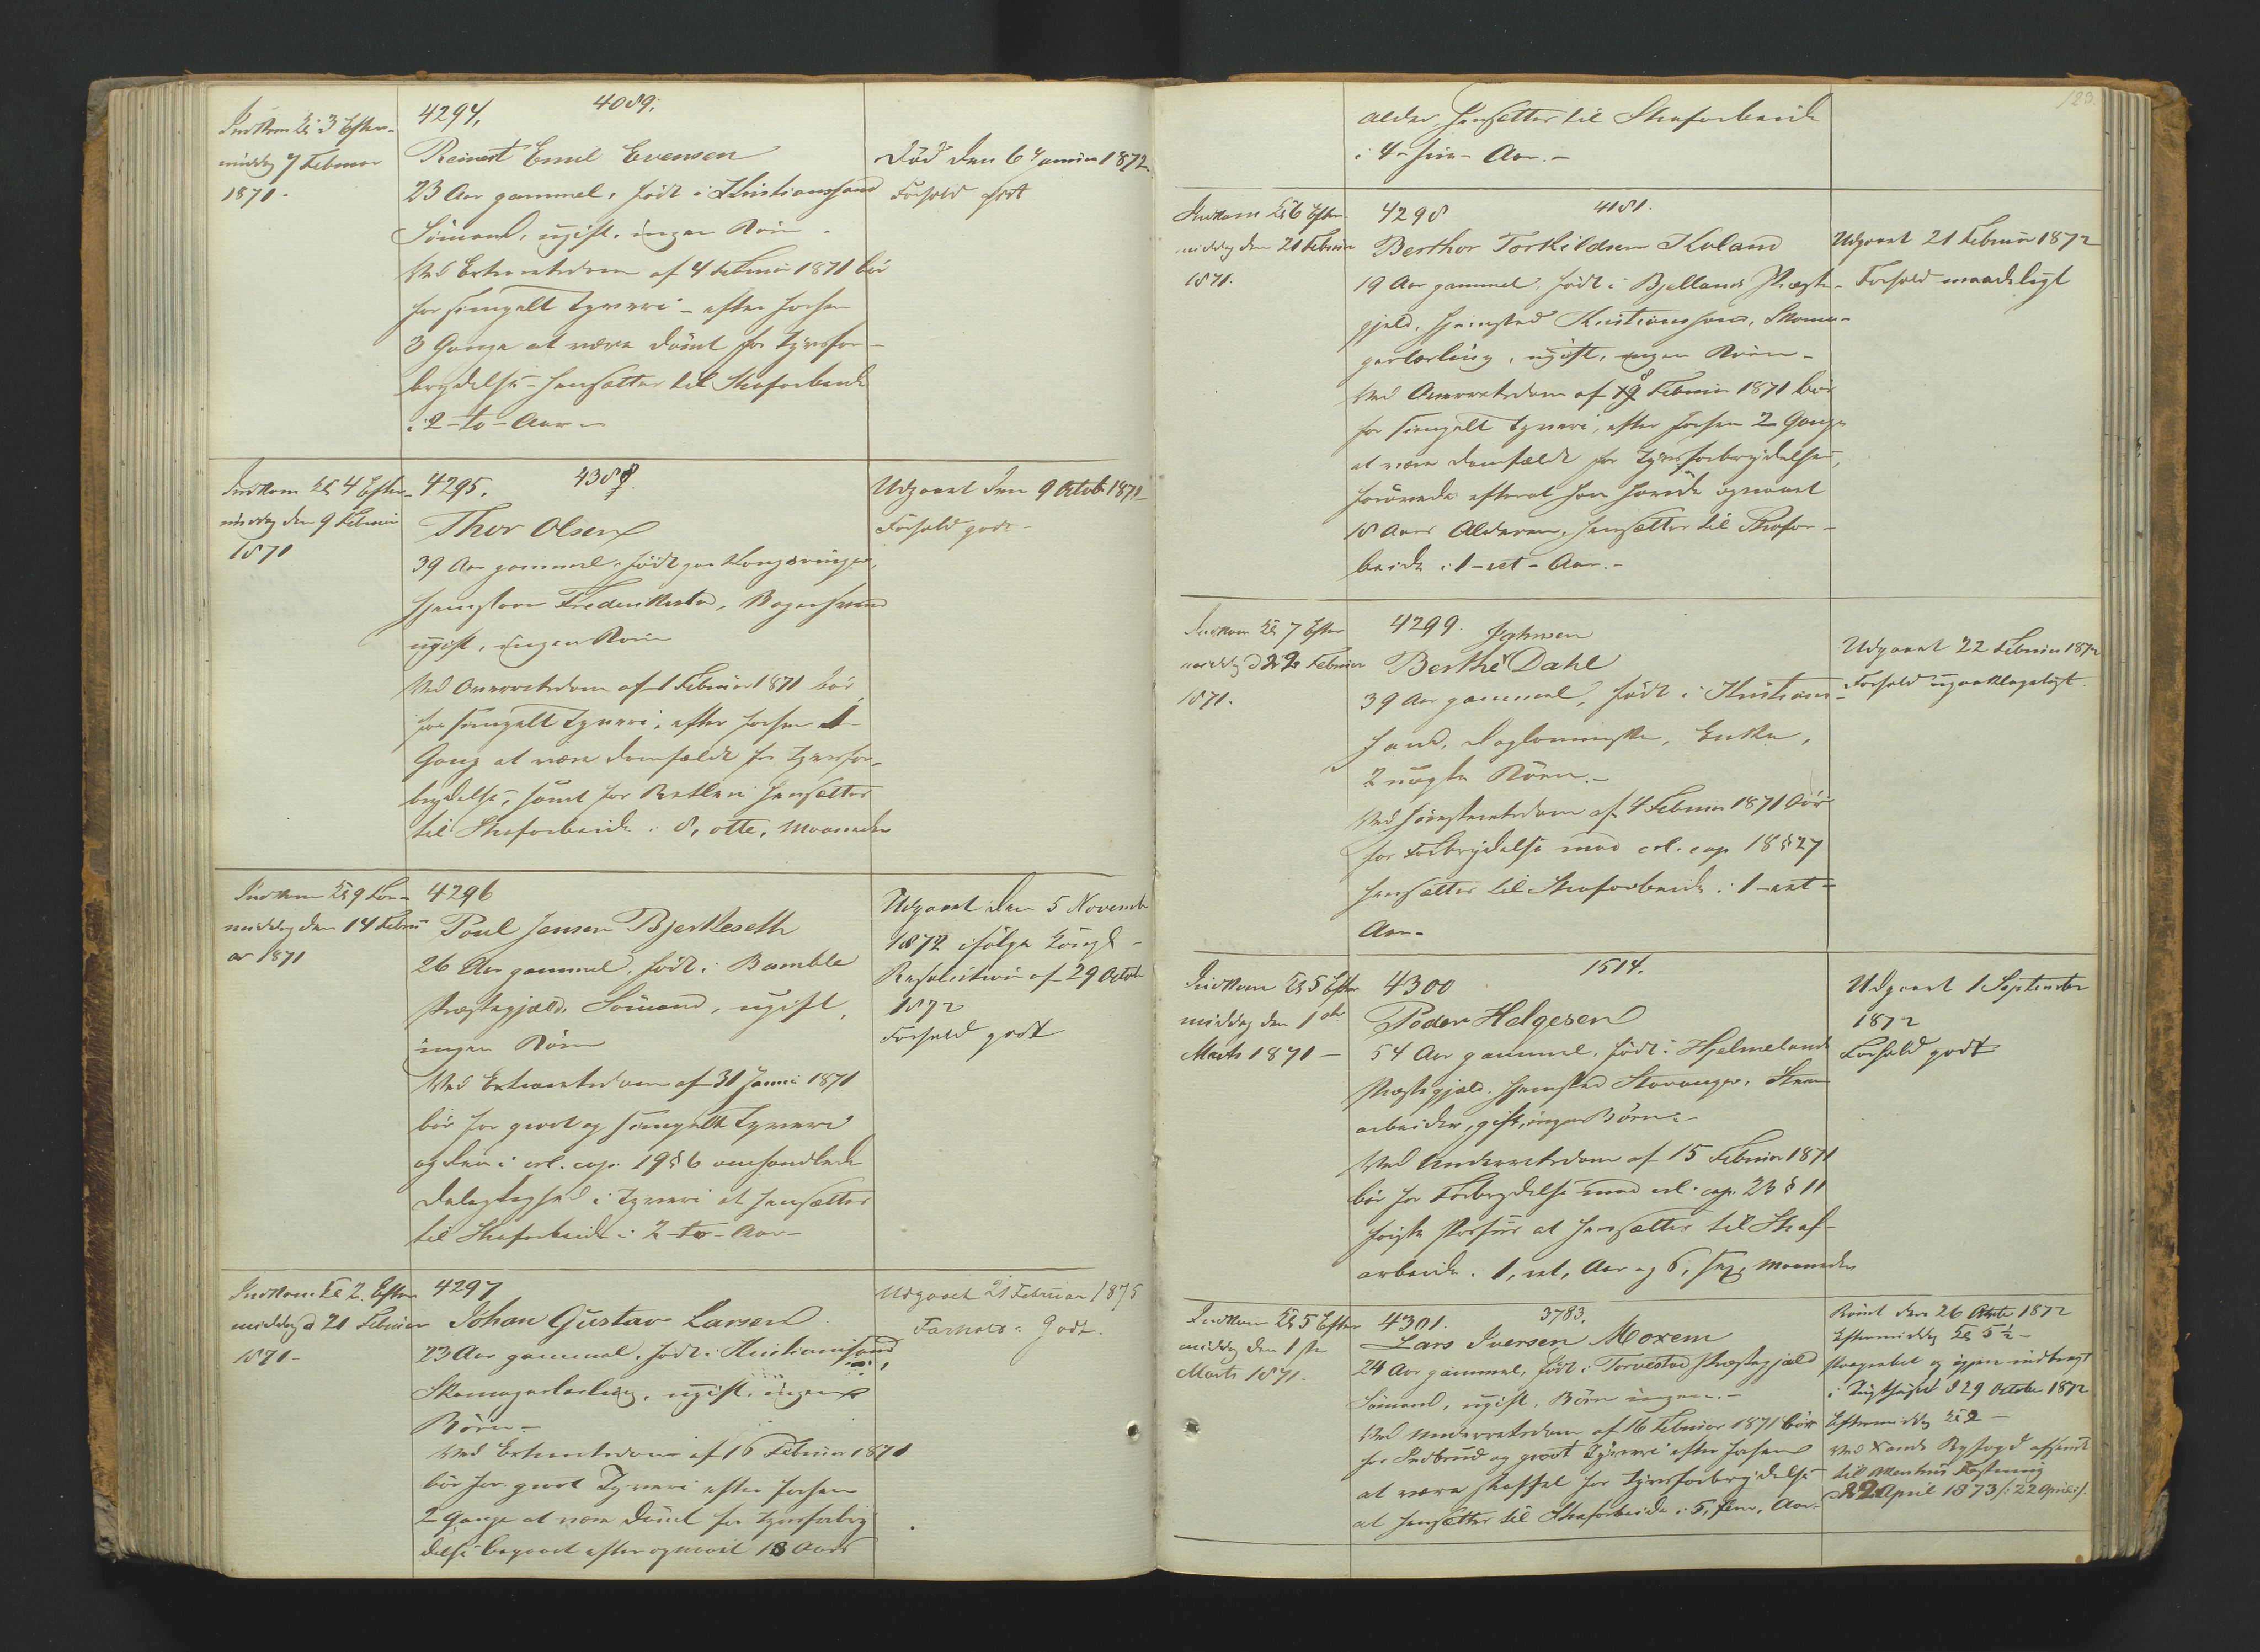 Indkom Kl 3 Efter-
middag 7 Februar
1871.
4294. 4089.
Reinert Emil Evensen
23 Aar gammel, født i Kristianssand
Sömand, ugift, ingen Börn.
Ved Extraretsdom af 4 Februar 1871 bör
for simpelt Tyveri - efter forhen
3 Gange at være dömt for Tyvsfor-
brydelse - hensættes til Strafarbeide
i 2 - to - Aar -
Död den 6 Januar 1872
Forhold godt
Indkom Kl 4 Efter-
middag den 9 Februar
1871
4295. 4388
Thor Olsen
39 Aar gammel, födt paa Kongsvinger,
Hjemstavn Frederikstad, Bagersvend
ugift, ingen Börn
Ved Overretsdom af 1 Februar 1871 bör
for simpelt Tyveri, efter forhen 1
Gang at være domfældt for Tyvsfor-
brydelse, samt for Betleri hensættes
til Strafarbeide i 8, otte, Maaneder
Udgaaet den 9 Octob 1871
Forhold godt -
Indkom Kl 9 For-
middag den 14 Febru
ar 1871
4296
Poul Jensen Bjerkeseth
26 Aar gammel, födt i Bamble
Præstegjæld, Sömand, ugift,
ingen Börn
Ved Extraretsdom af 31 Januar 1871
bör for grovt og simpelt Tyveri
og den i crl. cap. 19 § 6 omhandlede
Delagtighed i Tyveri at hensættes
til Strafarbeide i 2 - to - Aar -
Udgaaet den 5 Novemb
1872 ifølge Kongl -
Resolution af 29 Octob
1872
Forhold godt
Indkom Kl 2. Efter
middag d 21 Februar
1871 -
4297
Johan Gustav Larsen
23 Aar gammel, födt i Kristianssand
Skomagerlærling, ugift, ingen
Börn -
Ved Extraretsdom af 16 Februar 1871
bör for grovt Tyveri efter forhen
2 Gange at være dömt for Tyvsforbry
delse begaaet efter opnaaet 18 Aars
Udgaaet 21 Februar 1875
Forhold: Godt.
123.
Alder, hensættes til Strafarbeide
i 4 - fire - Aar. -
Indkom Kl 6 Efter-
middag den 21 Februar
1871.
4298 4181.
Berthor Torkildsen Koland
19 Aar gammel, födt i Bjellands Præste-
gjeld, Hjemsted Kristianssand, Skoma-
gerlærling, ugift, ingen Börn -
Ved Overretsdom af 8 Februar 1871 bör
for simpelt Tyveri, efter forhen 2 Gange
at være domfældt for Tyvsforbrydelser,
forövede efterat han havde opnaaet
18 Aars Alderen, hensættes til Strafar-
beide i 1 - et - Aar. -
Udgaaet 21 Februar 1872
Forhold maadeligt
Indkom Kl 7 Efter
middag d 22 Februar
1871.
4299. Johnsen
Berthe Dahl
39 Aar gammel, födt i Kristians-
sand, Daglönnerske, Enke,
2 uægte Börn. -
Ved Höiesteretsdom af 4 Februar 1871 bör
for Forbrydelse mod crl. cap 18 § 27
hensættes til Strafarbeide i 1 - eet -
Aar -
Udgaaet 22 Februar 1872
Forhold upaaklageligt.
Indkom Kl 5 Efter
middag den 1ste
Marts 1871 -
4300 1514.
Peder Helgesen
54 Aar gammel, födt i Hjelmelands
Præstegjæld, Hjemsted Stavanger, Steen
arbeider, gift, ingen Börn -
Ved Underretsdom af 15 Februar 1871
bör for Forbrydelse mod crl. cap. 23 § 11
förste Passus at hensættes til Straf-
arbeide i 1, et, Aar og 6, sex, Maaneder
Udgaaet 1 September
1872
Forhold godt
Indkom Kl 5 Efter
middag den 1ste
Marts 1871.
4301. 3783.
Lars Iversen Moxem
24 Aar gammel, födt i Torvestad Præstegjæld
Sömand, ugift, Börn ingen. -
Ved Underretsdom af 16 Februar 1871 bör
for Indbrud og grovt Tyveri efter forhen
at være straffet for Tyvsforbrydelse
at hensættes til Strafarbeide i 5, fem, Aar.
Römt den 26 Octbr 1872
Eftermiddag Kl 5 ½ -
Paagrebet og igjen indbragt
i Tugthuset d 29 October 1872
Eftermiddag Kl 2 -
til Akershus Festning
22 April 1873 /: 22 April :/